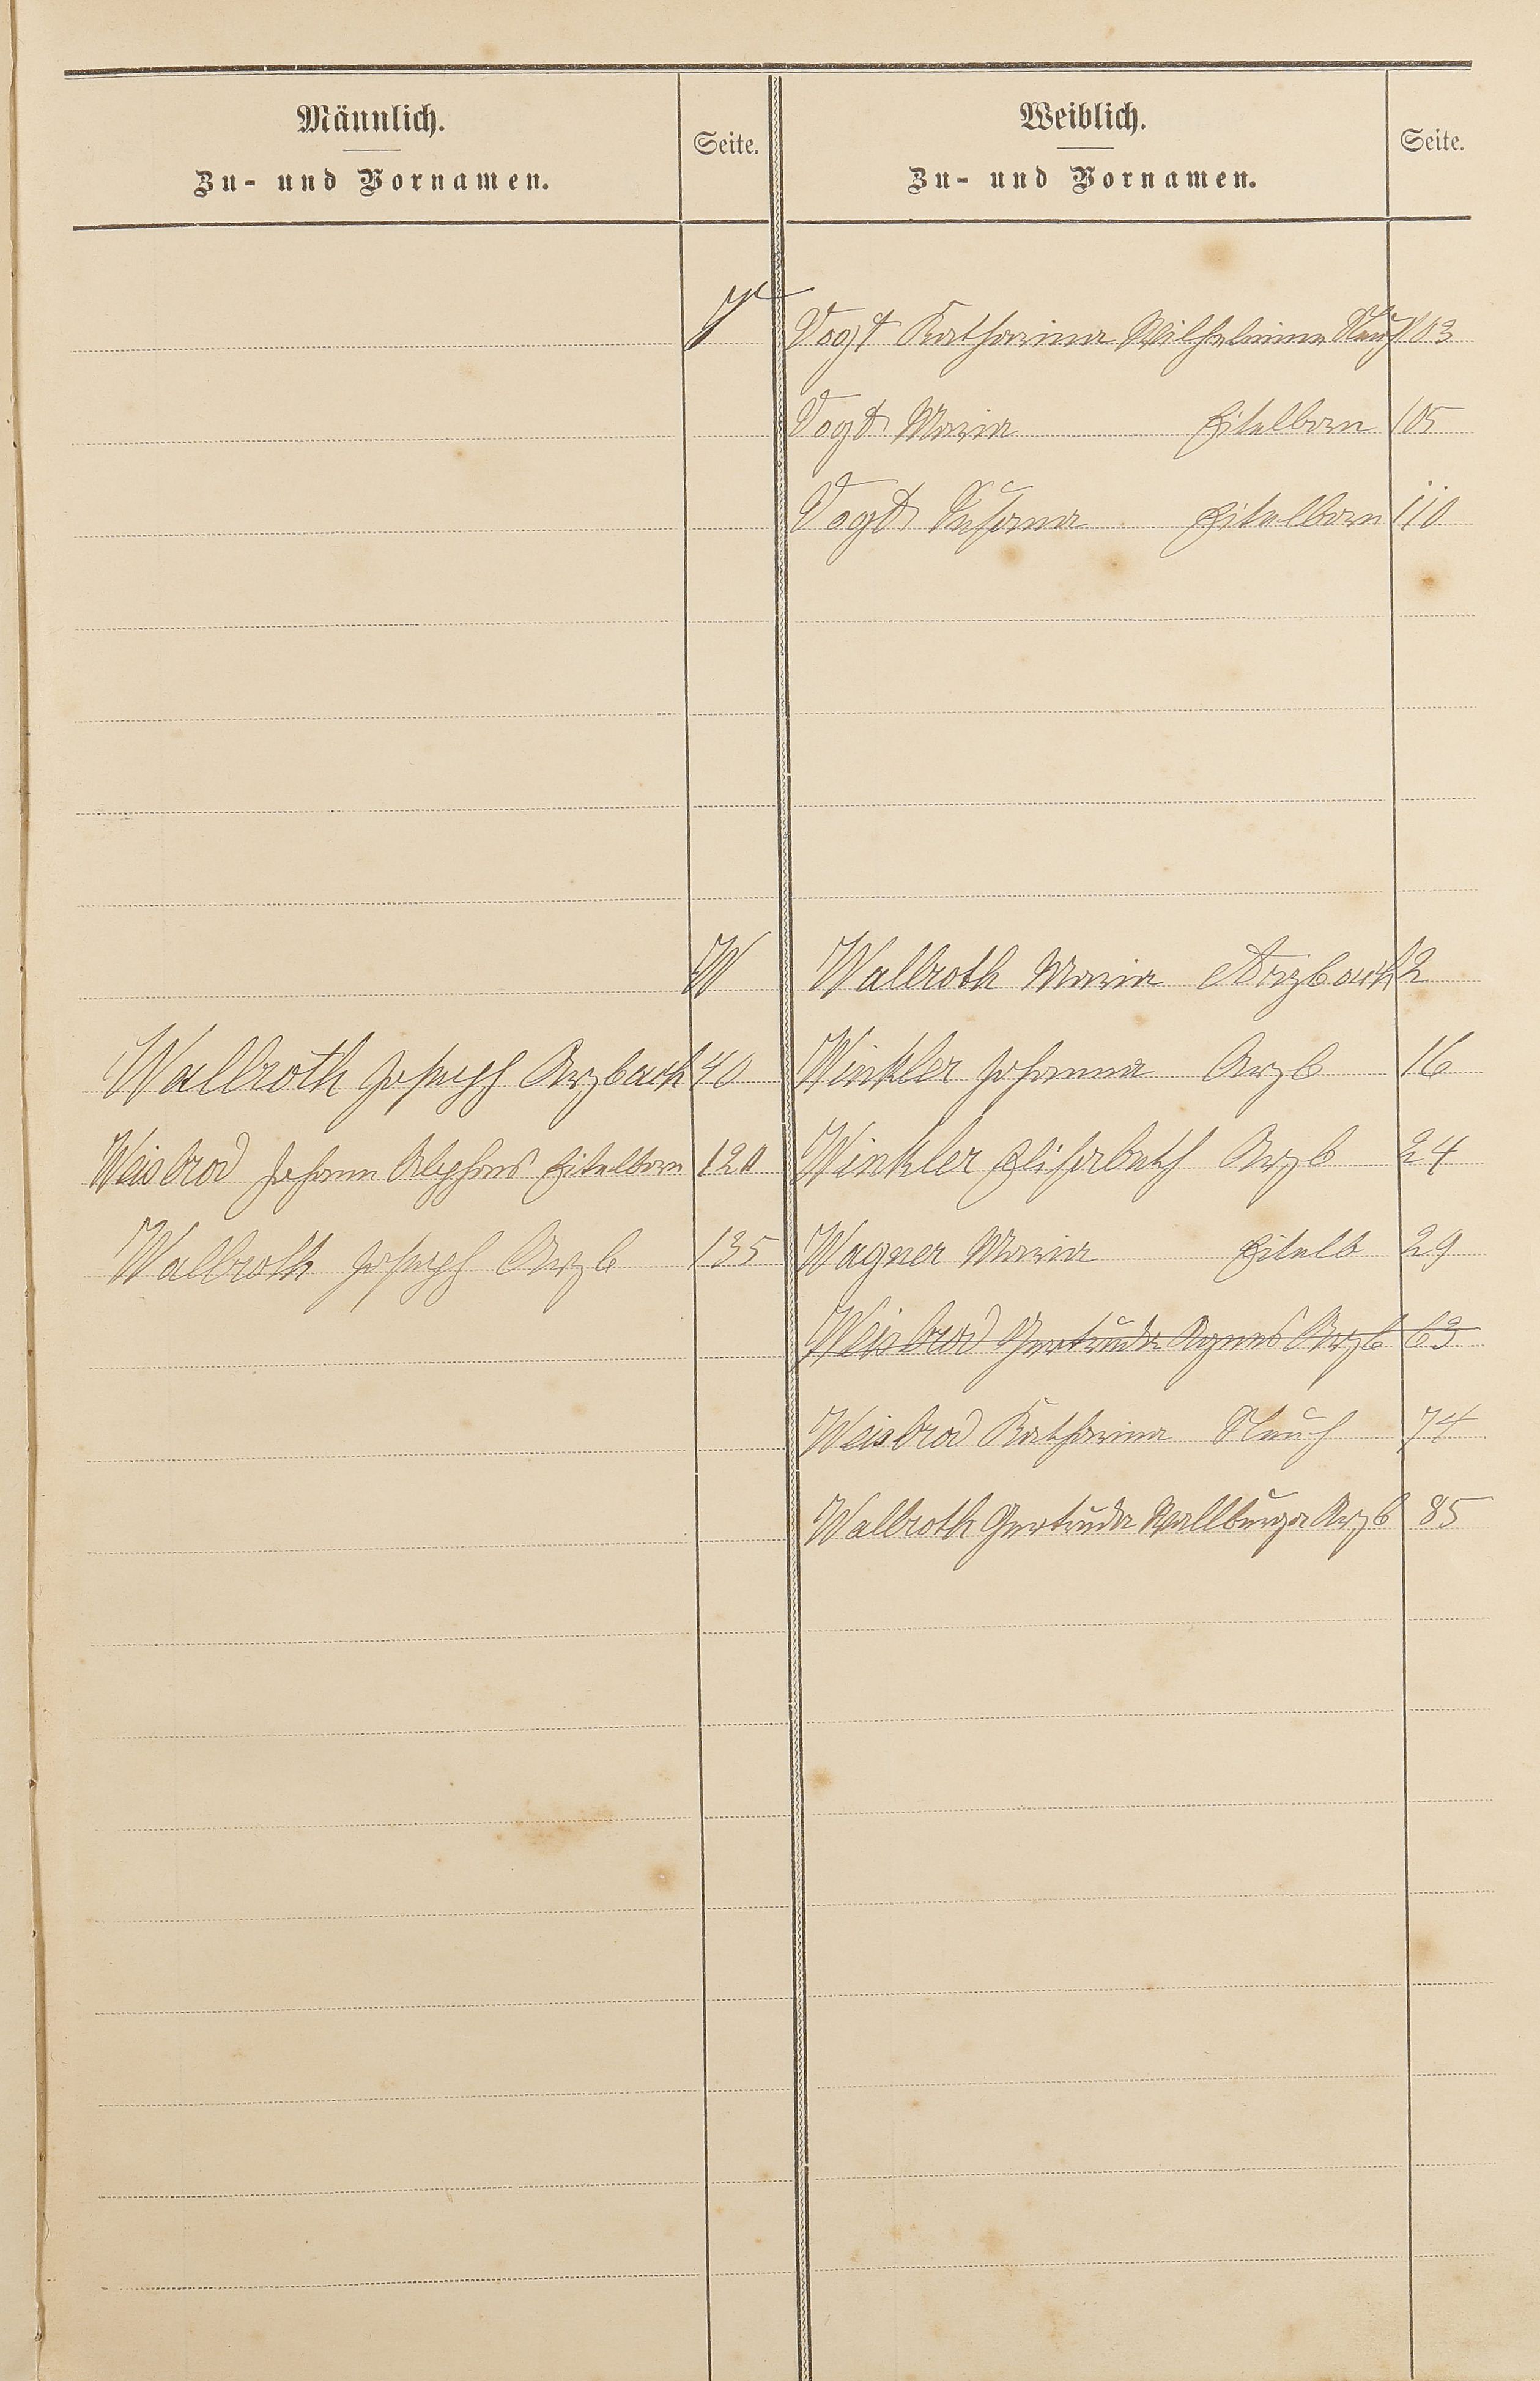 Männlich.
Zu- und Vornamen.
Seite.
Weiblich.
Zu- und Vornamen.
Seite.
V
Vogt Katharina Wilhelmina Neuh 103
Vogt Maria Eitelborn 105
Vogt Susana Eitelborn 110
W
Wallroth Maria Arzbach 2
Wallroth Joseph Arzbach 40
Winkler Johanna Arzb 16
Weisbrod Johann Alephons Eitelborn 120
Winkler Elisabeth Arzb 24
Wallroth Joseph Arzb 135
Wagner Maria Eitelb 29
Weisbrod Gertruda Agnes Arzb 63
Weisbrod Katharina Neuh 74
Wallroth Gertruda Wallburga Arzb 85